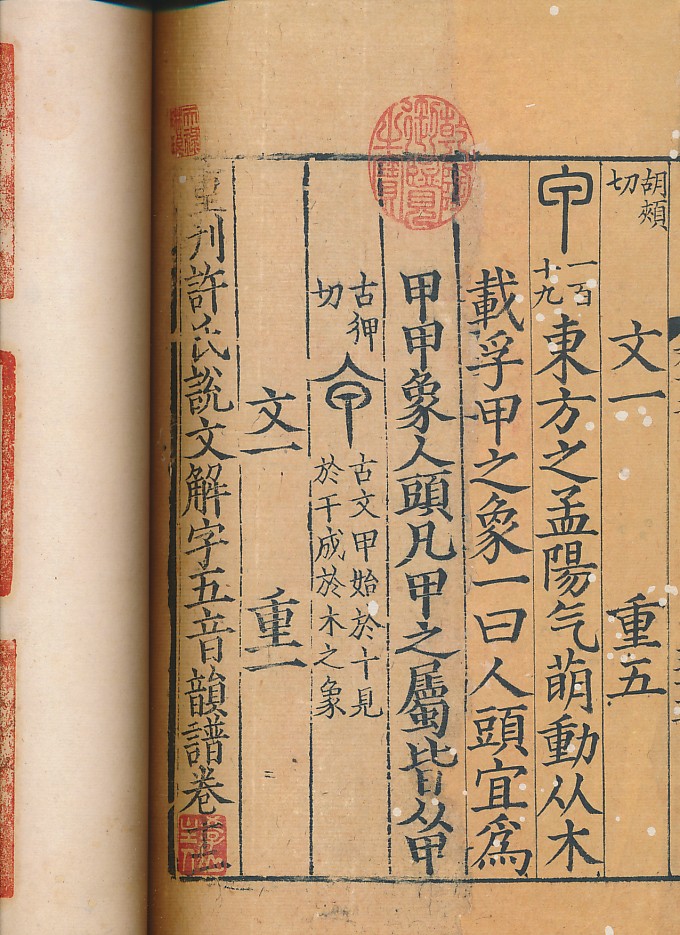 胡頰切 文一 重五
甲 一百十九 東方之孟陽气萌動从木
載孚甲之象一曰人頭宜爲
甲甲象人頭凡甲之屬皆从甲
古狎切 古文甲始於十見於干成於木之象
文一 重一
重刊許氏說文解字五音韻譜卷十二
乾隆御覽之寶